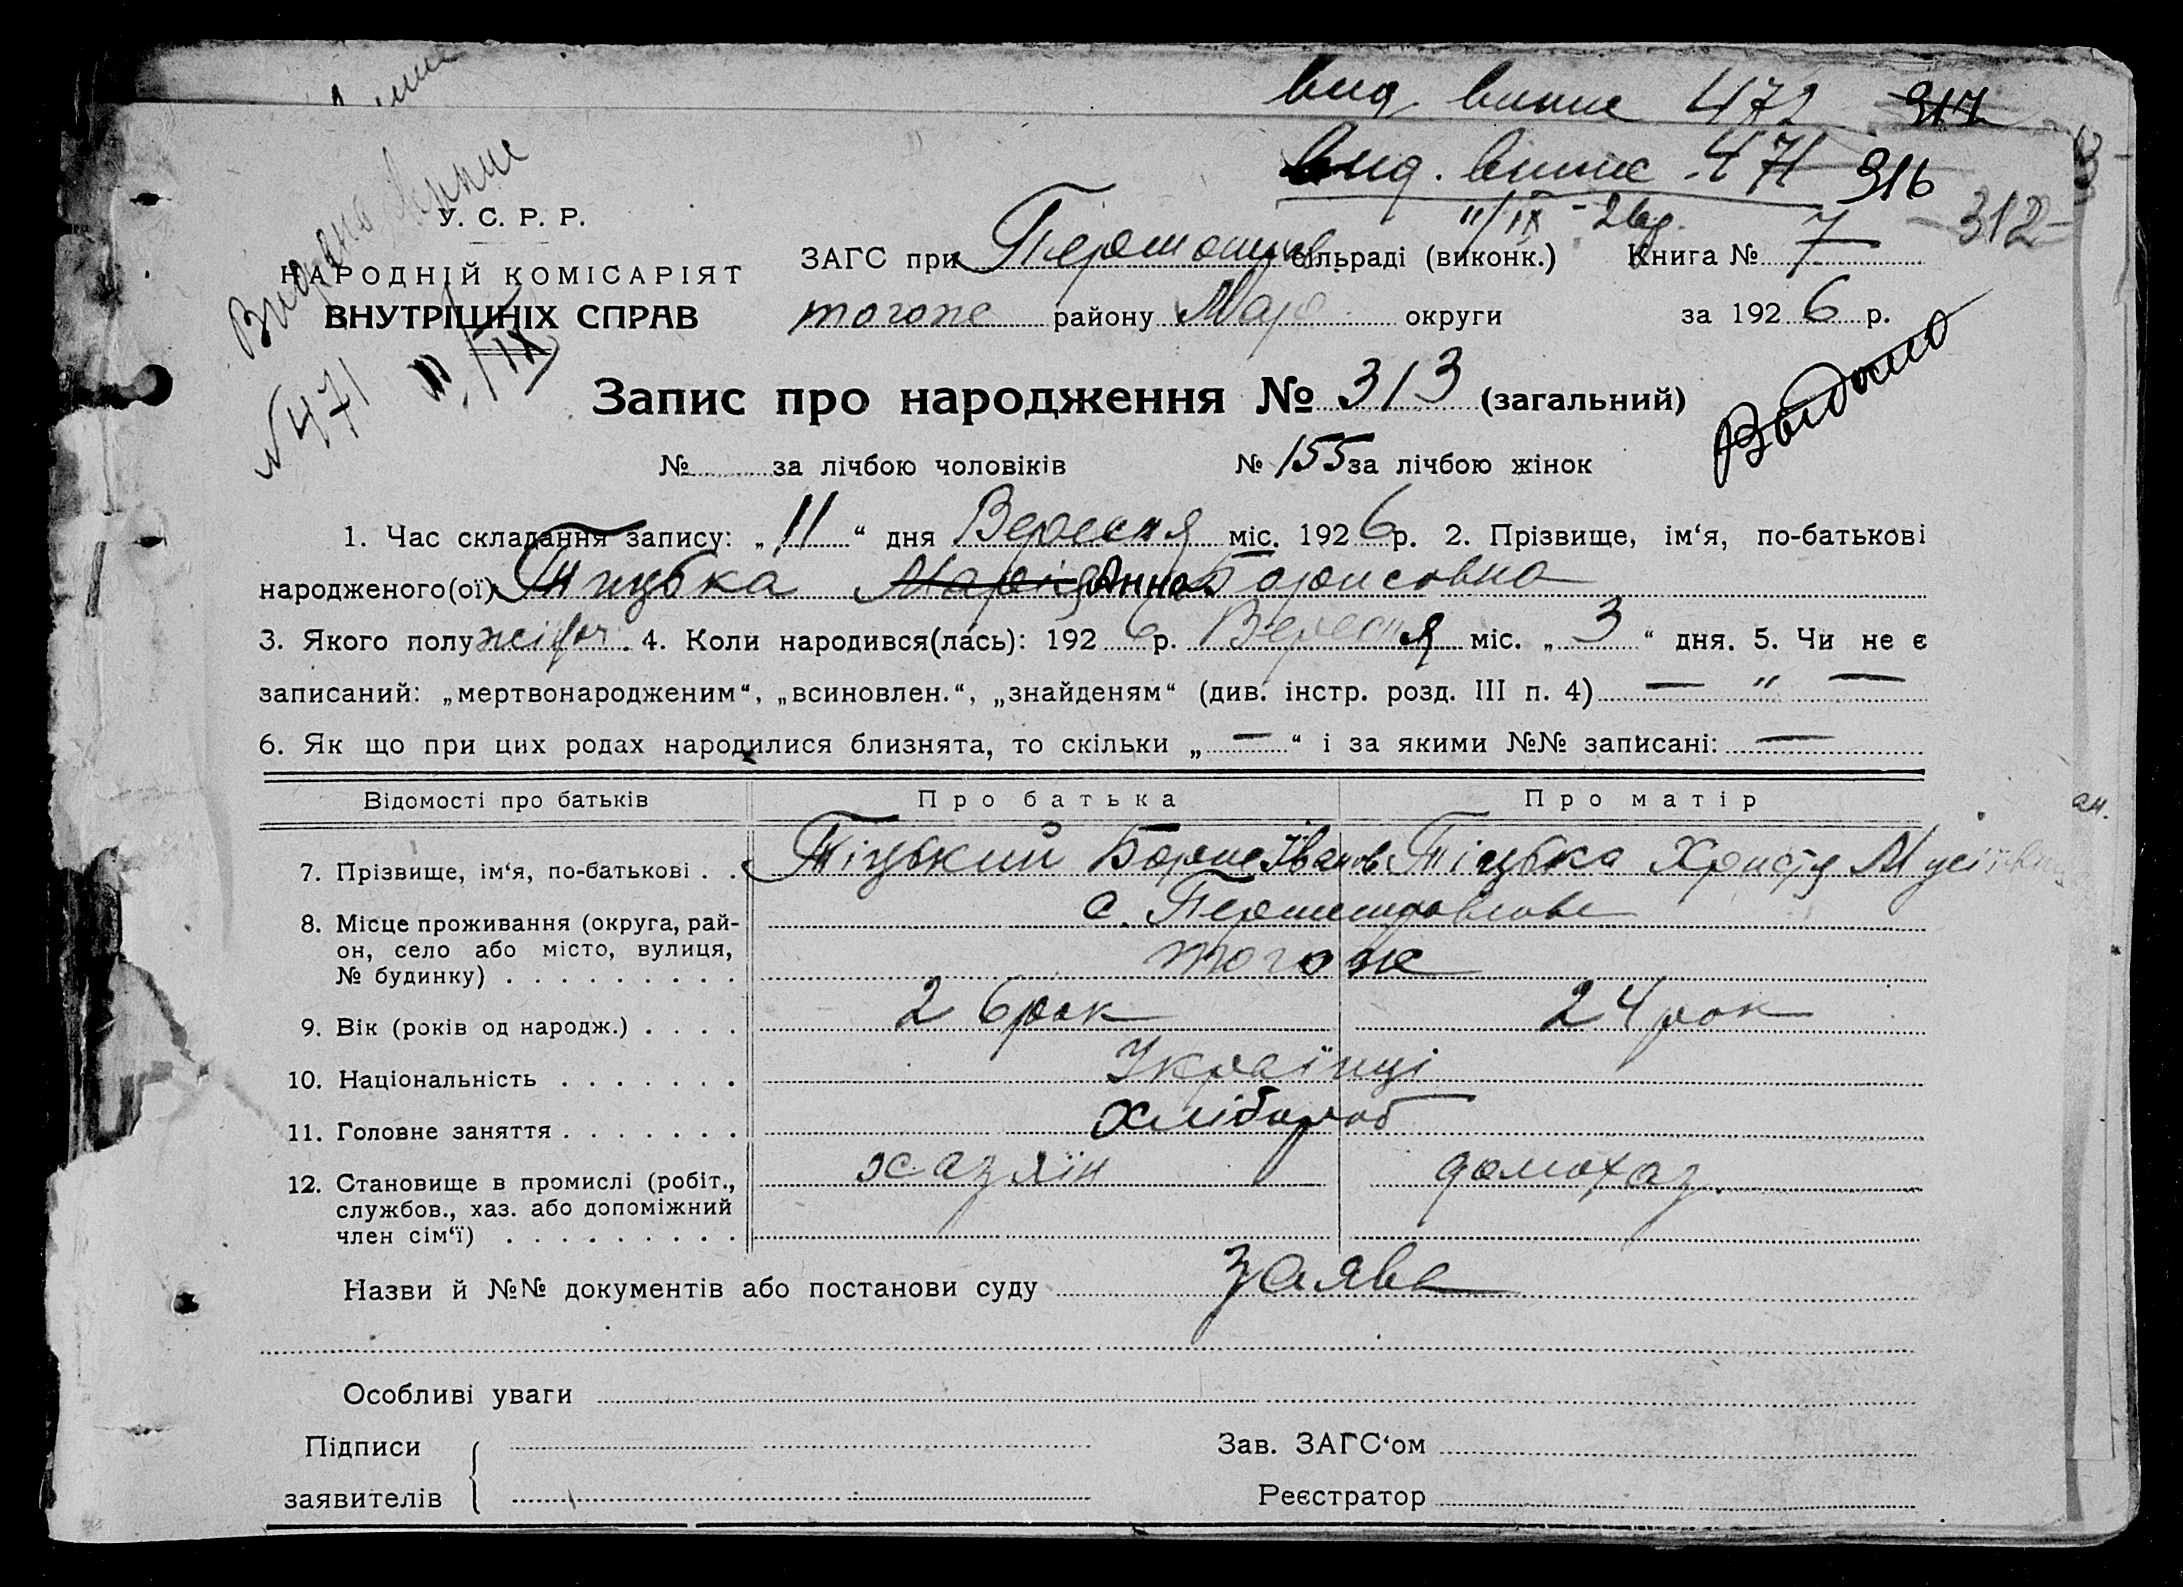 вид. випис 472 317
вид. випис 471 316
11/IX - 26р. - 312 -
Видано випис
№ 471 11/IX
У. С. Р. Р.
НАРОДНІЙ КОМІСАРІЯТ
ВНУТРІШНІХ СПРАВ
ЗАГС при сільраді (виконк.) Книга № 7
тогоже району округи за 1926 р.
Запис про народження № 313 (загальний)
Выдано
№ за лічбою чоловіків № 155 за лічбою жінок
1. Час складання запису: „11“ дня Вересня міс. 1926 р. 2. Прізвище, ім‘я, по-батькові
народженого(ої) Тіцька Марія Анна Борисовна
3. Якого полу жіноч. 4. Коли народився(лась): 1926 р. Вересня міс. „3“ дня. 5. Чи не є
записаний: „мертвонародженим“, „всиновлен.“, „знайденям“ (див. інстр. розд. III п. 4) — " —
6. Як що при цих родах народилися близнята, то скільки „—“ і за якими №№ записані: —
Відомості про батьків Про батька Про матір
7. Прізвище, ім‘я, по-батькові . . Тіцький Борис Іванов Тіцька Христя Мусіївна
8. Місце проживання (округа, рай-
он, село або місто, вулиця,
№ будинку) . . . . . . . . .
с.
тогоже
9. Вік (років од народж.) . . . . 26 рок 24 рок
10. Національність . . . . . . . Українці
11. Головне заняття . . . . . . . Хлібороб
12. Становище в промислі (робіт.,
службов., хаз. або допоміжний
член сім‘ї) . . . . . . . . .
хазяїн домохаз.
Назви й №№ документів або постанови суду заява
Особливі уваги
Підписи
заявителів
Зав. ЗАГС‘ом
Реєстратор